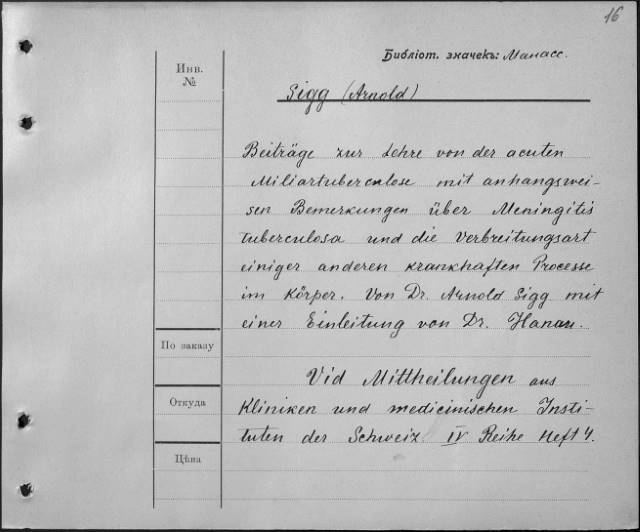 16
Библіот. значекъ: Манасс.
Инв.
№
Sigg (Arnold)
Beiträge zur Lehre von der acuten
Miliartuberculose mit anhangswei-
sen Bemerkungen über Meningitis
tuberculosa und die Verbreitungsart
einiger anderen krankhaften Processe
im Körper. Von Dr. Arnold Sigg mit
einer Einleitung von Dr. Hanau.
По заказу
Vid Mittheilungen aus
Откуда
Kliniken und medicinischen Insti-
tuten der Schweiz. IV Reihe Heft 4.
Цѣна